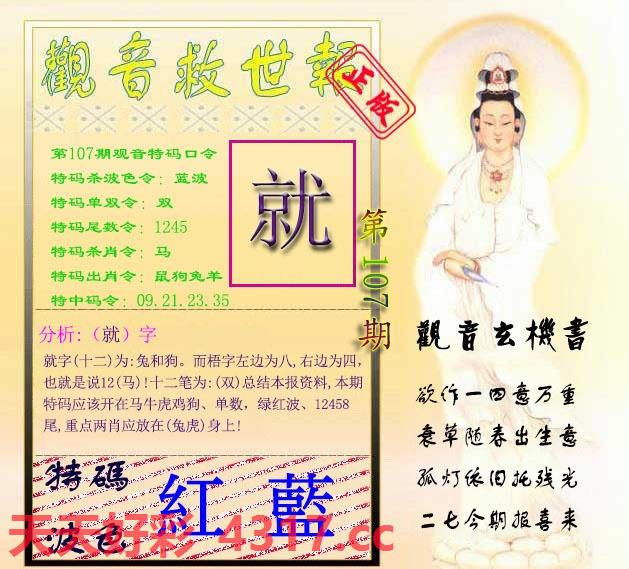 觀音救世報
正版
第107期观音特码口令
特码杀波色令：蓝波
特码单双令：双
特码尾数令：1245
特码杀肖令：马
特码出肖令：鼠狗兔羊
特中码令：09.21.23.35
就
第107期
分析:（就）字
就字(十二)为:兔和狗。而梧字左边为八,右边为四,
也就是说12(马)!十二笔为:(双)总结本报资料,本期
特码应该开在马牛虎鸡狗、单数，绿红波、12458
尾,重点两肖应放在(兔虎)身上!
觀音玄機書
欲作一四意万重
衰草随春出生意
孤灯依旧托残光
二七今期报喜来
特碼
波色
紅藍
天天好彩 4317.cc